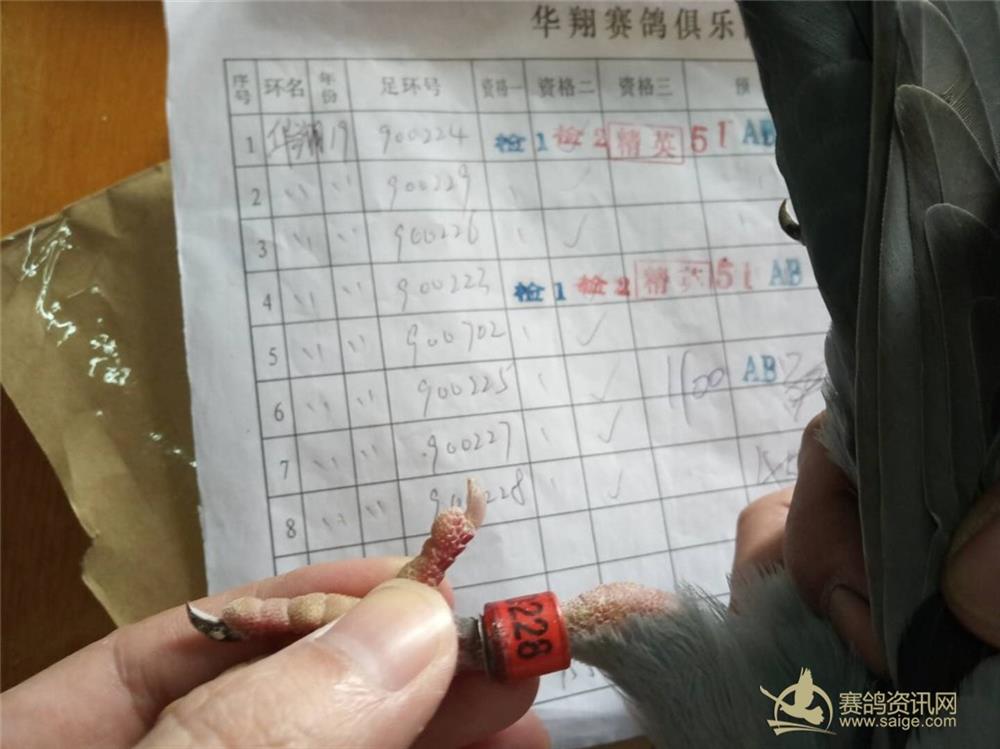 华翔赛鸽俱乐
序号 环名 年份 足环号 资格一 资格二 资格三 预
1 华翔 19 900224 检1 检2 精英 51 AB
2 〃 〃 900229 ✓
3 〃 〃 900226 ✓
4 〃 〃 900223 检1 检2 精英 51 AB
5 〃 〃 900702 ✓
6 〃 〃 900225 ✓ 1600 AB
7 〃 〃 900227 ✓
8 〃 〃 228 ✓
228
赛鸽资讯网
www.saige.com